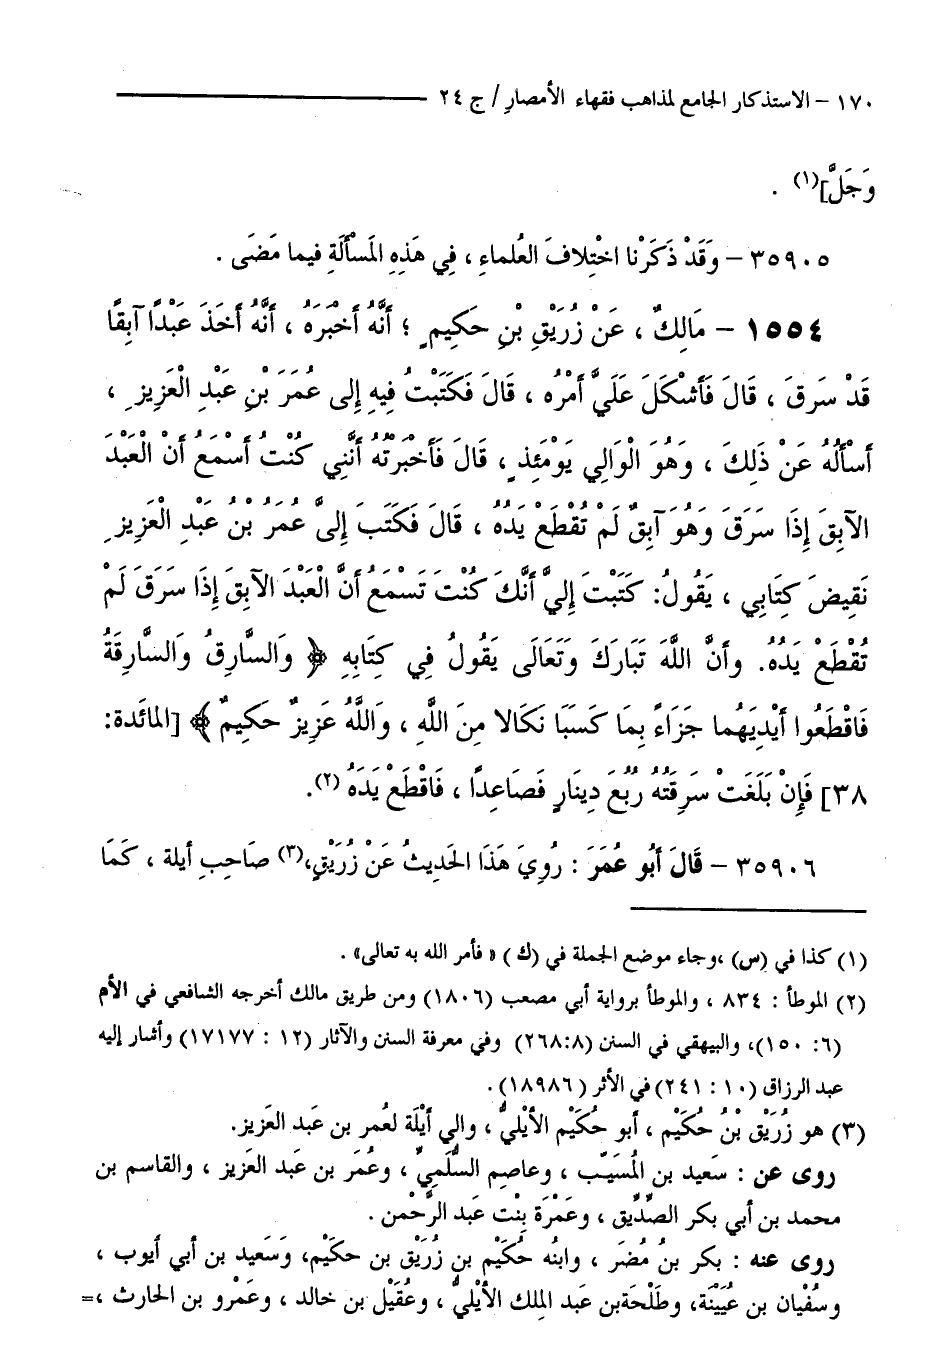 ١٧٠ – الاستذكار الجامع لمذاهب فقهاء الأمصار / ج ٢٤
وَجَلَّ](١) .
٣٥٩٠٥ – وَقَدْ ذَكَرْنا اخْتِلافَ العُلماءِ ، فِي هَذِهِ المَسْأَلَةِ فيما مَضَى .
١٥٥٤ – مَالِكٌ ، عَنْ زُرَيْقِ بْنِ حَكِيمٍ ؛ أَنَّهُ أَخْبَرَهُ ، أَنَّهُ أَخَذَ عَبْدًا آبِقًا
قَدْ سَرَقَ ، قَالَ فَأَشْكَلَ عَلَيَّ أَمْرُه ، قَالَ فَكَتَبْتُ فِيهِ إِلى عُمَرَ بْنِ عَبْدِ الْعَزِيزِ ،
أَسْأَلُهُ عَنْ ذَلِكَ ، وَهُوَ الْوَالِي يَوْمَئِذٍ ، قَالَ فَأَخْبَرْتُه أَنَّنِي كُنْتُ أَسْمَعُ أَنَّ الْعَبْدَ
الآبِقَ إِذَا سَرَقَ وَهُوَ آبِقٌ لَمْ تُقْطَعْ يَدُهُ ، قَالَ فَكَتَبَ إِلىَّ عُمَرُ بْنُ عَبْدِ الْعَزِيزِ
نَقِيضَ كِتَابِي ، يَقُولُ: كَتَبْتَ إِلَيَّ أَنَّكَ كُنْتَ تَسْمَعُ أَنَّ الْعَبْدَ الآبِقَ إِذَا سَرَقَ لَمْ
تُقْطَعْ يَدُهُ. وَأَنَّ اللَّهَ تَبَارَكَ وَتَعَالَى يَقُولُ فِي كِتَابِهِ ﴿ وَالسَّارِقُ وَالسَّارِقَةُ
فَاقْطَعُوا أَيْدِيَهُما جَزَاءً بِمَا كَسَبَا نَكَالا مِنَ اللَّهِ ، وَاللَّهُ عَزِيزٌ حَكِيمٌ ﴾ [المائدة:
٣٨] فَإِنْ بَلَغَتْ سَرِقَتُهُ رُبُعَ دِينَارٍ فَصَاعِدًا ، فَاقْطَعْ يَدَهُ (٢).
٣٥٩٠٦ – قَالَ أَبُو عُمَرَ : رُوِيَ هَذَا الحَدِيثُ عَنْ زُرَيْقٍ،(٣) صَاحِبِ أيلة ، كَمَا
(١) كذا في (س) ،وجاء موضع الجملة في (ك) « فأمر الله به تعالى» .
(٢) الموطأ : ٨٣٤ ، والموطأ برواية أبي مصعب (١٨٠٦) ومن طريق مالك أخرجه الشافعي في الأم
(٦: ١٥٠)، والبيهقي في السنن (٢٦٨:٨) وفي معرفة السنن والآثار (١٢ : ١٧١٧٧) وأشار إليه
عبد الرزاق (١٠ : ٢٤١) في الأثر (١٨٩٨٦) .
(٣) هو زُرَيْق بْنُ حُكَيْم ، أبو حُكَيْم الأَيْليُّ ، والي أَيْلَة لعُمر بن عَبد العَزيز.
روى عن : سَعيد بن المُسَيّب ، وعاصِم السُّلَميِّ ، وعُمَر بن عَبد العَزيز ، والقاسِم بن
محمد بن أبي بكر الصِّدِّيق ، وعَمْرَة بِنْت عَبد الرَّحْمن .
روى عنه : بكر بن مُضَر ، وابنُه حُكَيْم بن زُرَيْق بن حكَيْم، وَسَعيد بن أبي أيوب ،
وسُفْيان بن عُيَيْنَة، وطَلْحَةبن عَبد المِلك الأَيْليُّ ، وعُقَيْل بن خالد ، وعَمْرو بن الحارث ،=